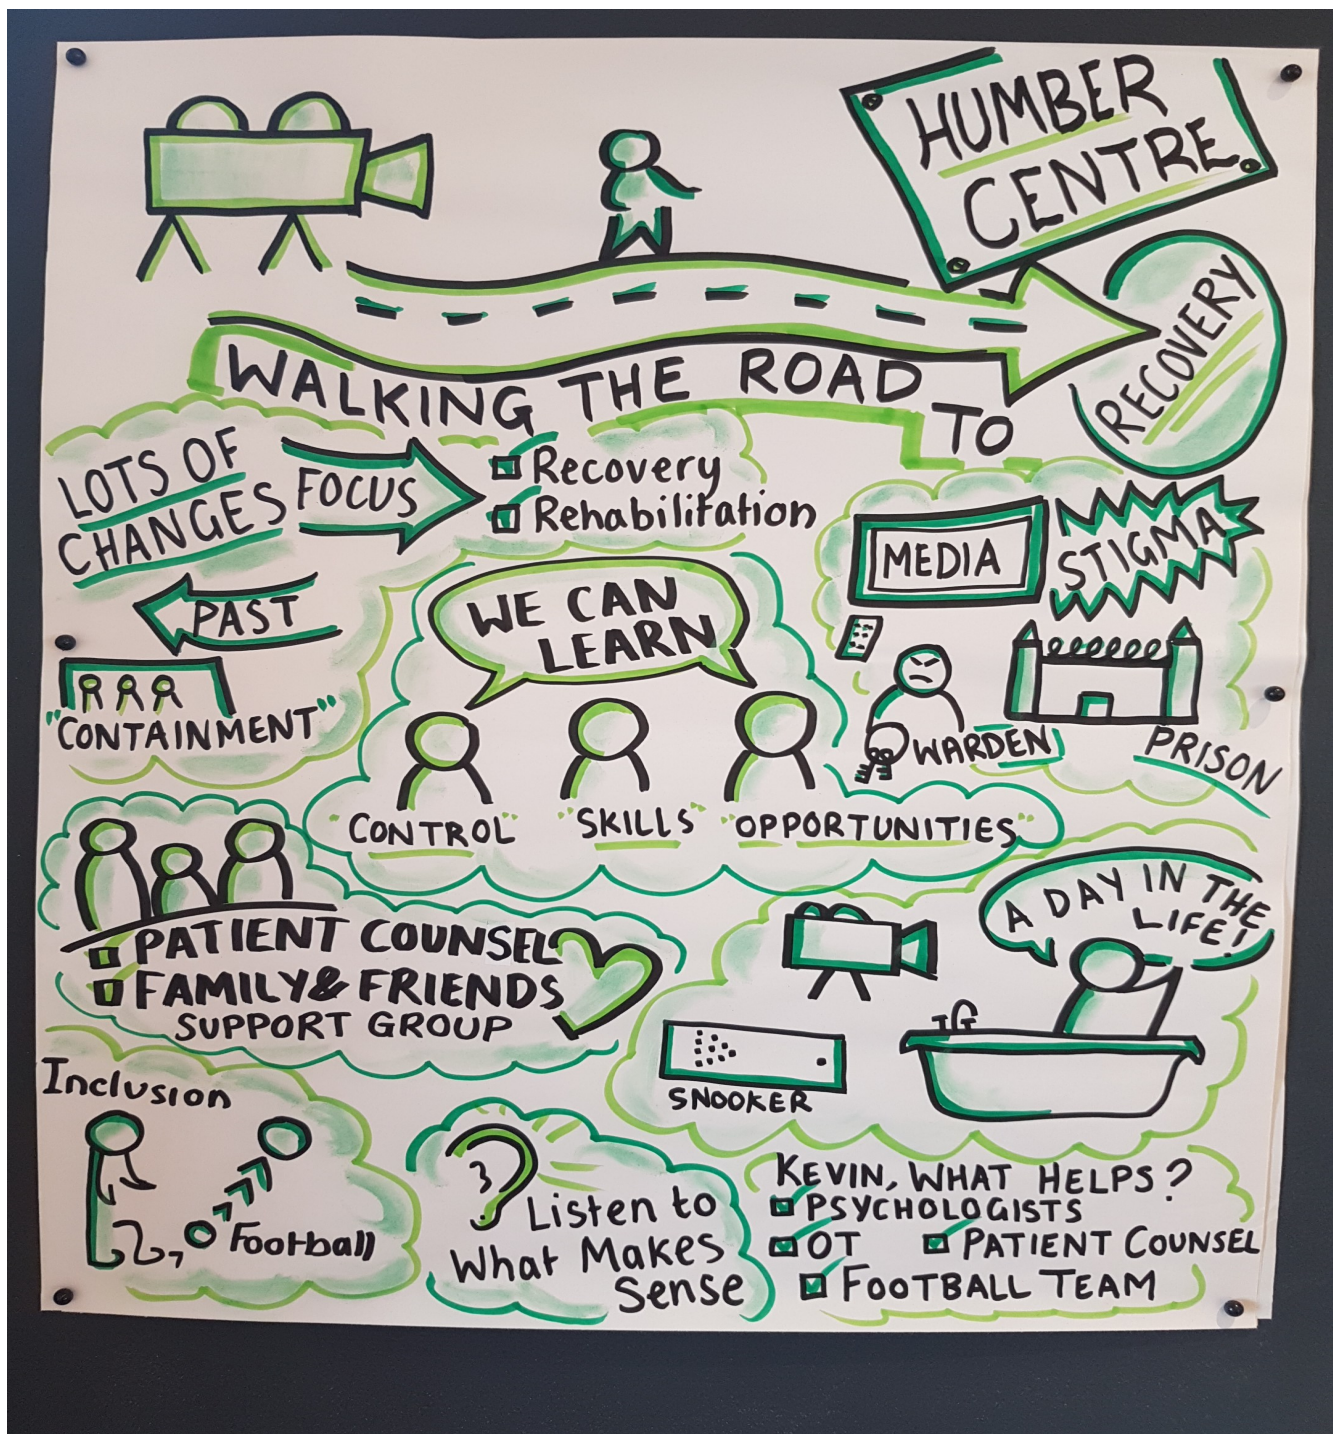 HUMBER
CENTRE
WALKING THE ROAD
TO
RECOVERY
LOTS OF
CHANGES
FOCUS
Recovery
Rehabilitation
PAST
"CONTAINMENT"
WE CAN
LEARN
"CONTROL"
"SKILLS"
"OPPORTUNITIES"
MEDIA
STIGMA
WARDEN
PRISON
PATIENT COUNSEL
FAMILY & FRIENDS
SUPPORT GROUP
A DAY IN THE
LIFE!
SNOOKER
Inclusion
Football
Listen to
What Makes
Sense
KEVIN, WHAT HELPS?
PSYCHOLOGISTS
OT
PATIENT COUNSEL
FOOTBALL TEAM